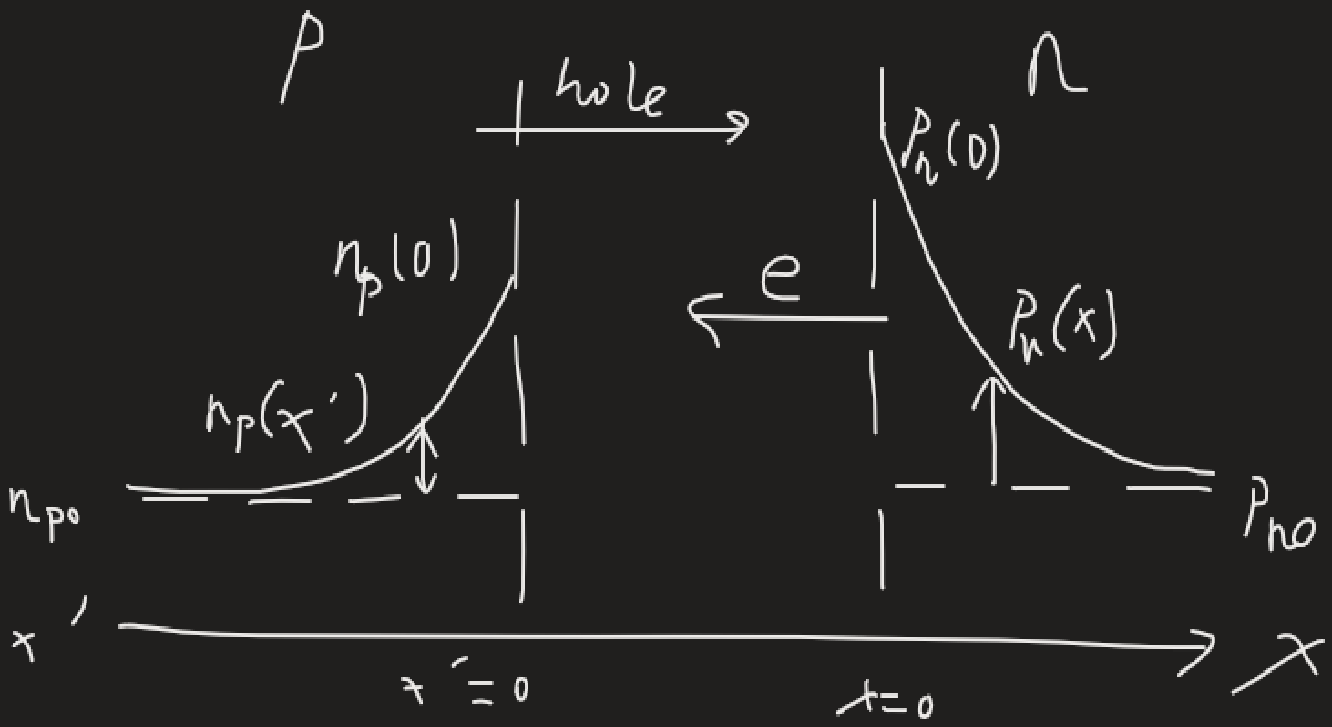 P
n
hole
Pn(0)
np(0)
e
Pn(x)
np(x')
npo
Pno
x'
x
x'=0
x=0